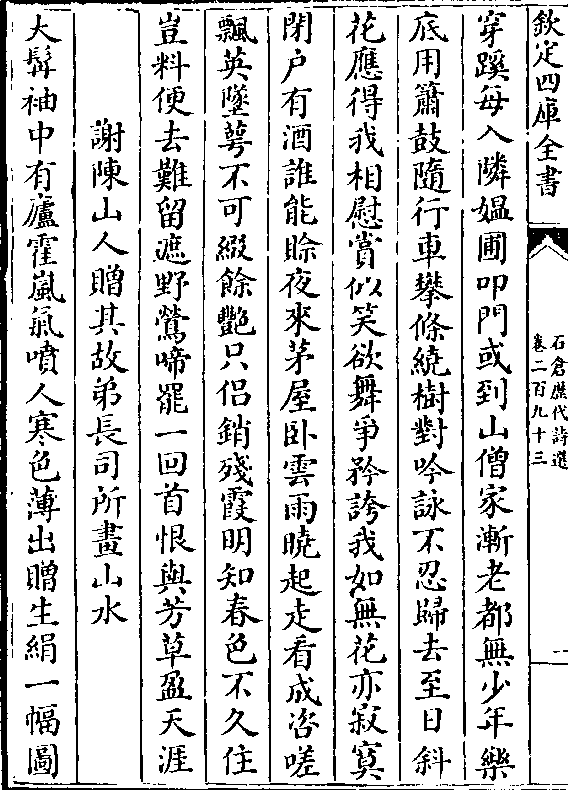 欽定四庫全書
石倉歷代詩選
卷二百九十三
一
穿蹊每入隣媼圃叩門或到山僧家漸老都無少年樂
底用簫鼓隨行車攀條繞樹對吟詠不忍歸去至日斜
花應得我相慰賞似笑欲舞爭矜誇我如無花亦寂寞
閉戸有酒誰能賒夜來茅屋臥雲雨曉起走看成咨嗟
飄英墜萼不可綴餘艷只侶銷殘霞明知春色不久住
豈料便去難留遮野鶯啼罷一回首恨與芳草盈天涯
謝陳山人贈其故弟長司所畫山水
大髯袖中有廬霍嵐氣噴人寒色薄出贈生絹一幅圖